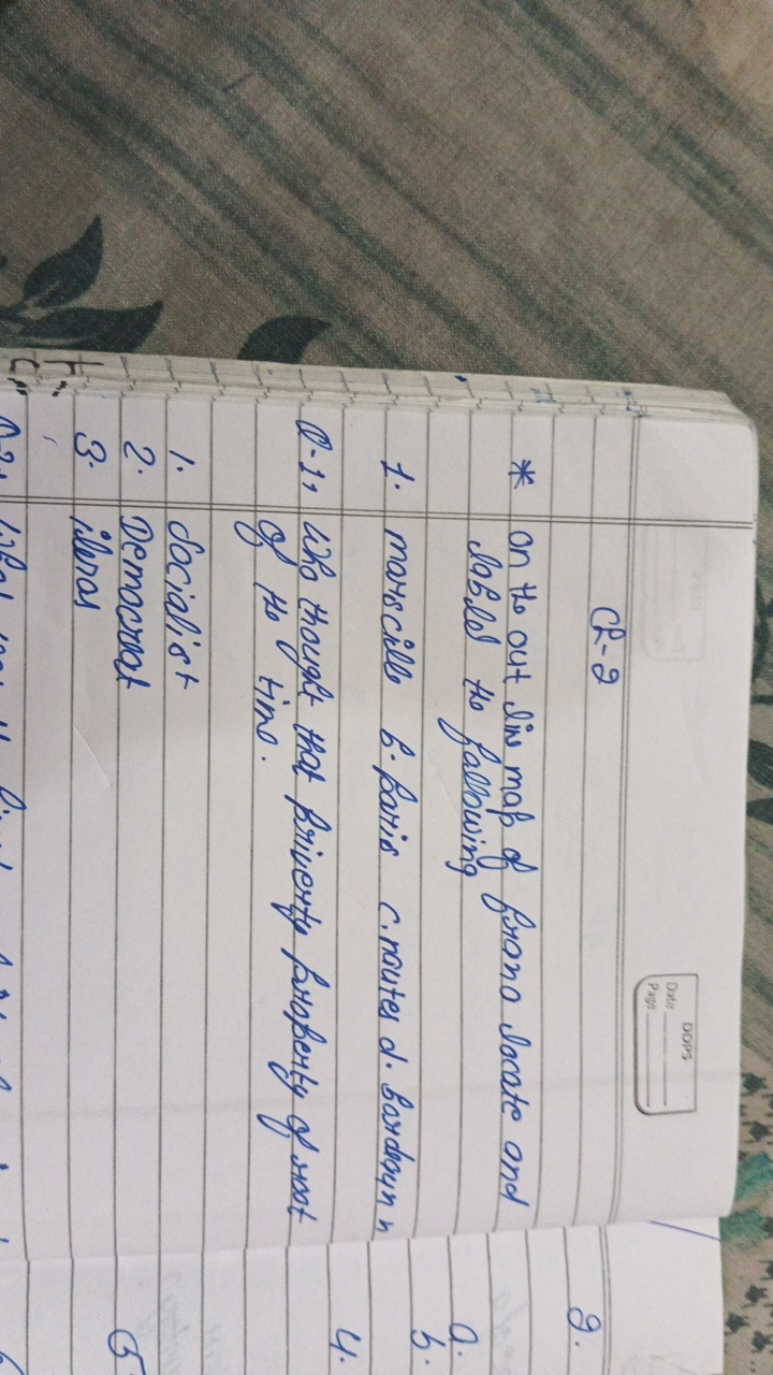 DDPS
Date
Page
Ch-2
* on the out line map of frano locate and
labled the following
1. marscille b. paris c. noutes d. bordeaun
Q-1, who thought that priverty proberty of root
of the time.
1. Socialist
2. Democrat
3. ileras
2.
a.
b.
4.
5